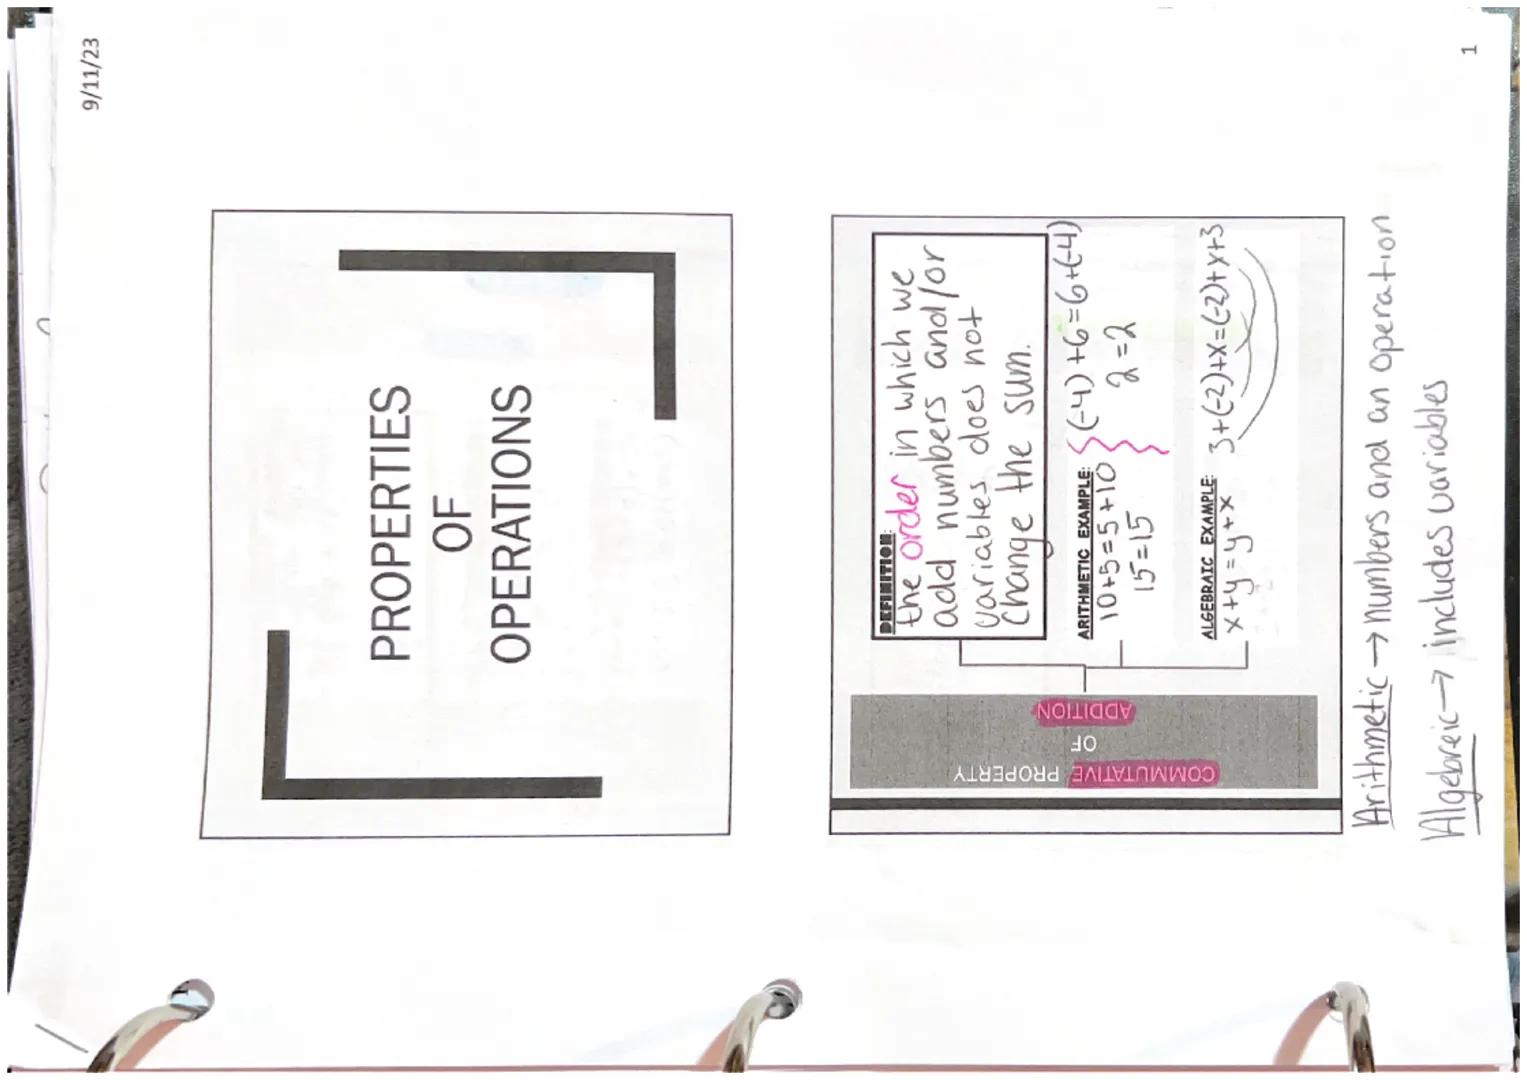 9/11/23
PROPERTIES
OF
OPERATIONS
COMMUTATIVE PROPERTY
OF
ADDITION
DEFINITION:
the order in which we
add numbers and/or
variables does not
change the sum.
ARITHMETIC EXAMPLE:
10+5=5+10
15=15
(-4)+6=6+(-4)
2=2
ALGEBRAIC EXAMPLE:
x+y=y+x
3+(-2)+x=(-2)+x+3
Arithmetic→numbers and an operation
Algebreic→includes variables
1